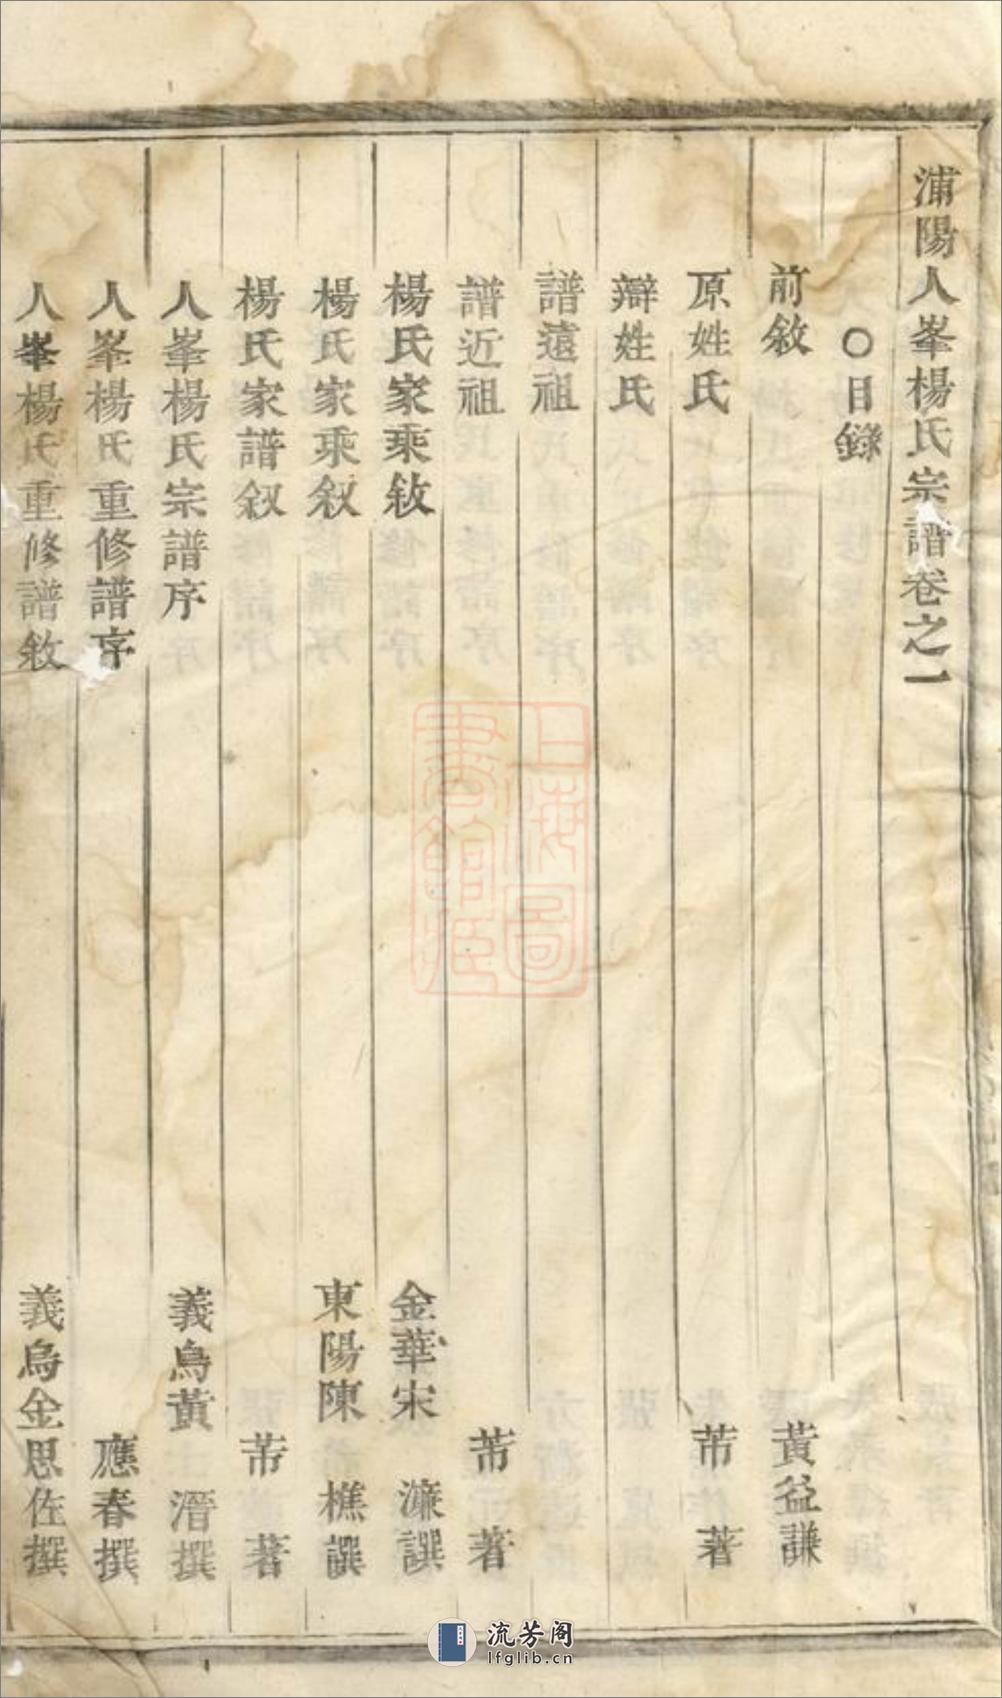 浦陽人峯楊氏宗譜卷之一
○目錄
前敘 黃益謙
原姓氏 芾著
辯姓氏
譜遠祖
譜近祖 芾著
楊氏家乘敘 金華宋濂譔
楊氏家乘敘 東陽陳樵譔
楊氏家譜叙 芾著
人峯楊氏宗譜序 義烏黃溍撰
人峯楊氏重修譜序 應春撰
人峯楊氏重修譜敘 義烏金思佐撰
上海圖
書館藏
流芳阁
lfglib.cn